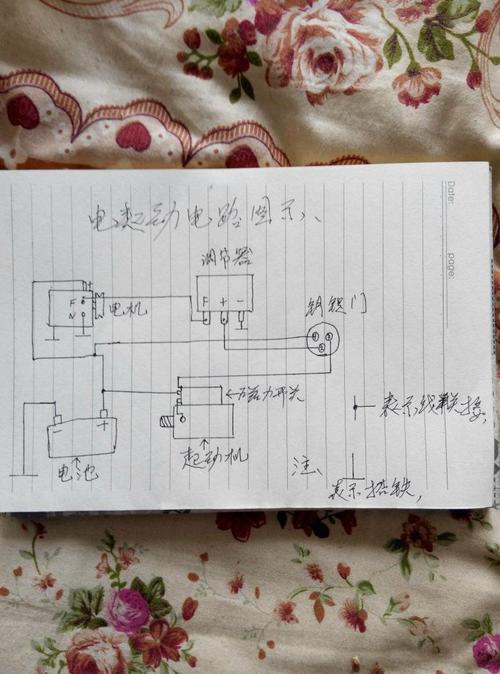 电起动电路图示
调节器
Date:
page:
F
+
-
+
F
N
电机
钥锁门
磁力开关
表示线联接,
-
+
电池
起动机
注、
表示搭铁,